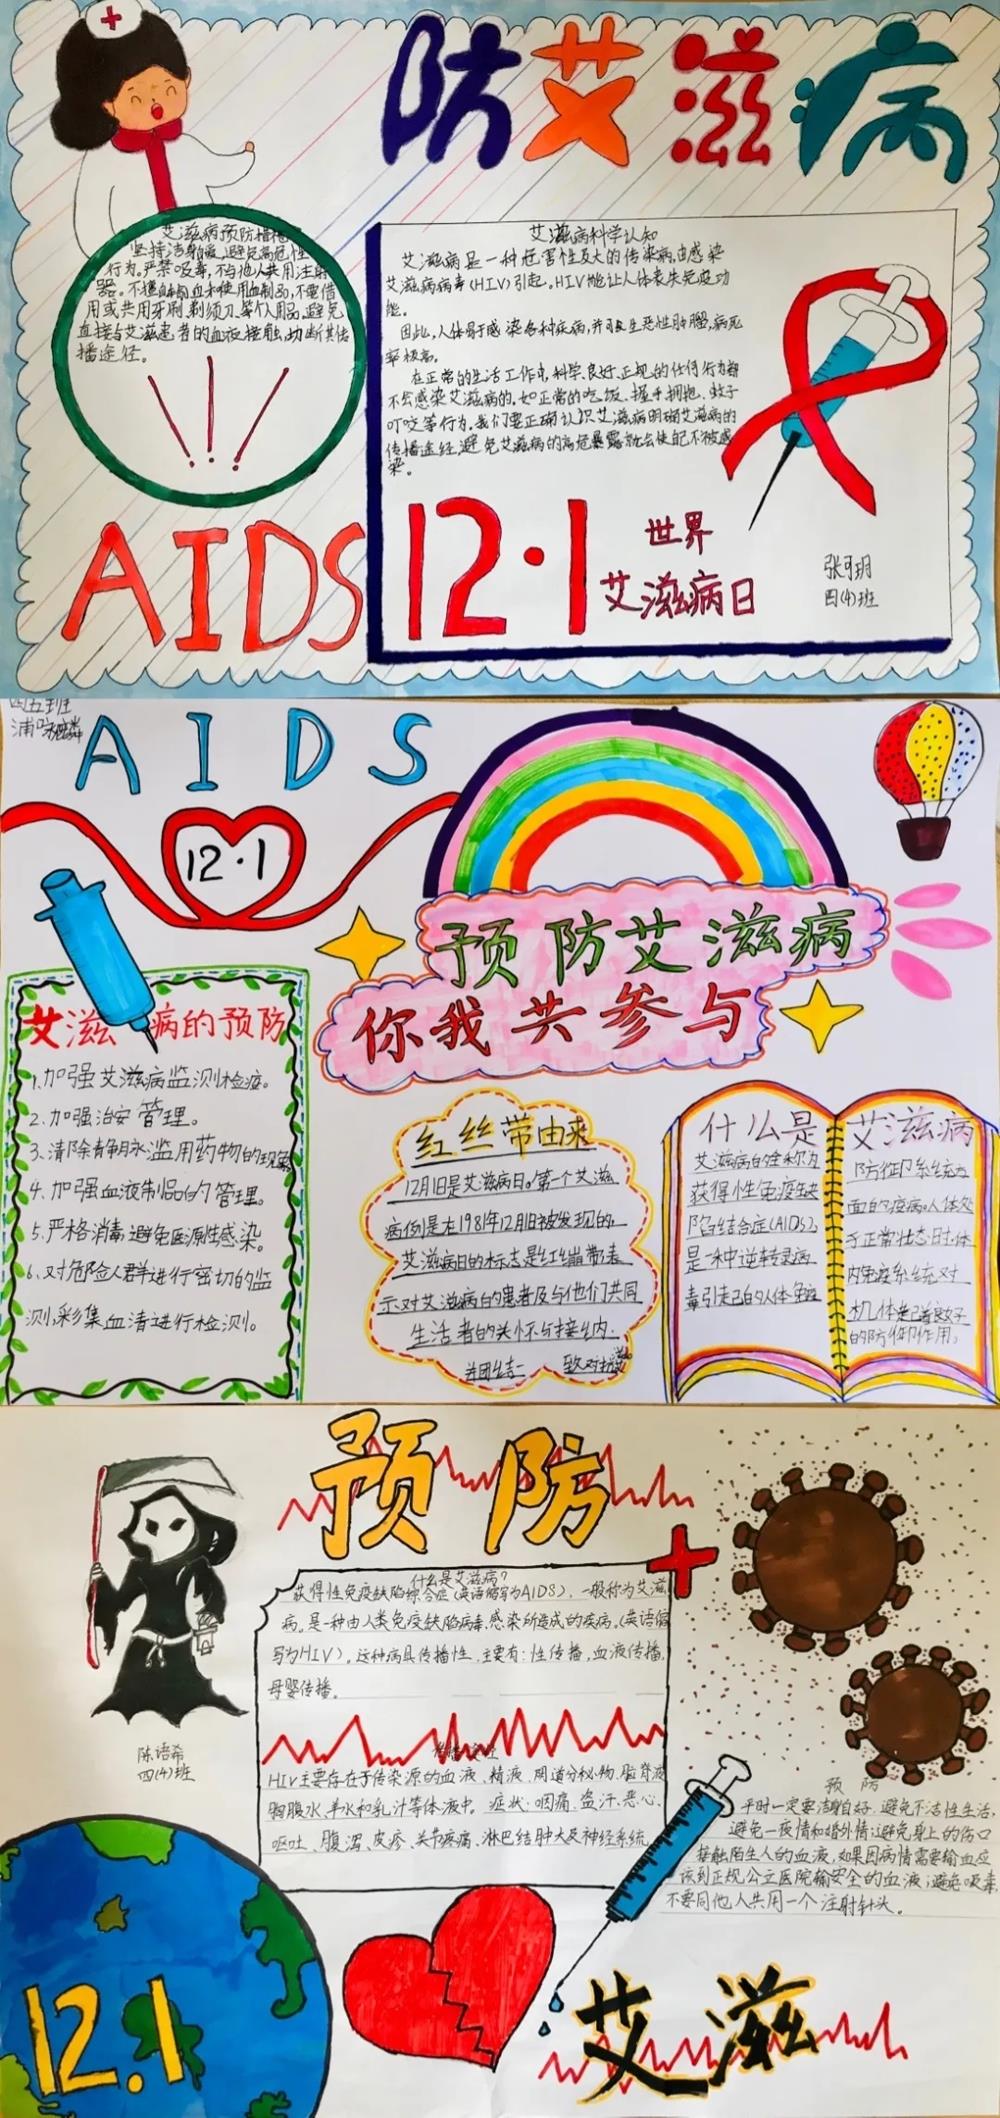 防艾滋病
艾滋病预防措施
坚持洁身自爱,避免高危性
行为。严禁吸毒,不与他人共用注射
器。不擅自输血和使用血制品,不要借
用或共用牙刷、剃须刀、等个人用品,避免
直接与艾滋患者的血液接触,切断其传
播途径。
AIDS
艾滋病科学认知
艾滋病是一种危害性极大的传染病,由感染
艾滋病病毒(HIV)引起。HIV能让人体丧失免疫功
能。
因此,人体易于感染各种疾病,并可发生恶性肿瘤,病死
率极高。
在正常的生活工作中,科学、良好、正规的任何行为都
不会感染艾滋病的,如正常的吃饭、握手拥抱、蚊子
叮咬等行为。我们要正确认识艾滋病明确艾滋病的
传播途经,避免艾滋病的高危暴露就会使自己不被感
染。
12·1
世界
艾滋病日
张可玥
四(4)班
四五班
AIDS
12·1
预防艾滋病
你我共参与
艾滋病的预防
1.加强艾滋病监测检疫。
2.加强治安管理。
3.清除静脉滥用药物的现象
4.加强血液制品的管理。
5.严格消毒避免医源性感染。
6.对危险人群进行密切的监
测,彩集血清进行检测。
红丝带由来
12月1日是艾滋病日。第一个艾滋
病例是在1981年12月1日被发现的。
艾滋病日的标志是红绷带,表
示对艾滋病的患者及与他们共同
生活者的关怀与接纳.
并团结一致对抗
什么是
艾滋病的全称为
获得性免疫缺
陷结合症(AIDS),
是一种逆转录病
毒引起的人体免疫
艾滋病
防御系统方
面的疾病。人体处
于正常状态日时,体
内免疫系统对
机体起着良好
的防御作用。
预防
什么是艾滋病?
获得性免疫缺陷综合症(英语缩写为AIDS),一般称为艾滋
病。是一种由人类免疫缺陷病毒感染所造成的疾病,(英语缩
写为HIV)。这种病具传播性,主要有:性传播,血液传播,
母婴传播。
HIV主要存在于传染源的血液、精液、阴道分泌物、脑脊液
胸腹水、羊水和乳汁等体液中。症状:咽痛、盗汗、恶心、
呕吐、腹泻、皮疹、关节疼痛、淋巴结肿大及神经系统
陈语希
四(4)班
预防
平时一定要洁身自好,避免不洁性生活,
避免一夜情和婚外情;避免身上的伤口
接触陌生人的血液,如果因病情需要输血应
该到正规公立医院输安全的血液;避免吸毒,
不要同他人共用一个注射针头。
12.1
艾滋